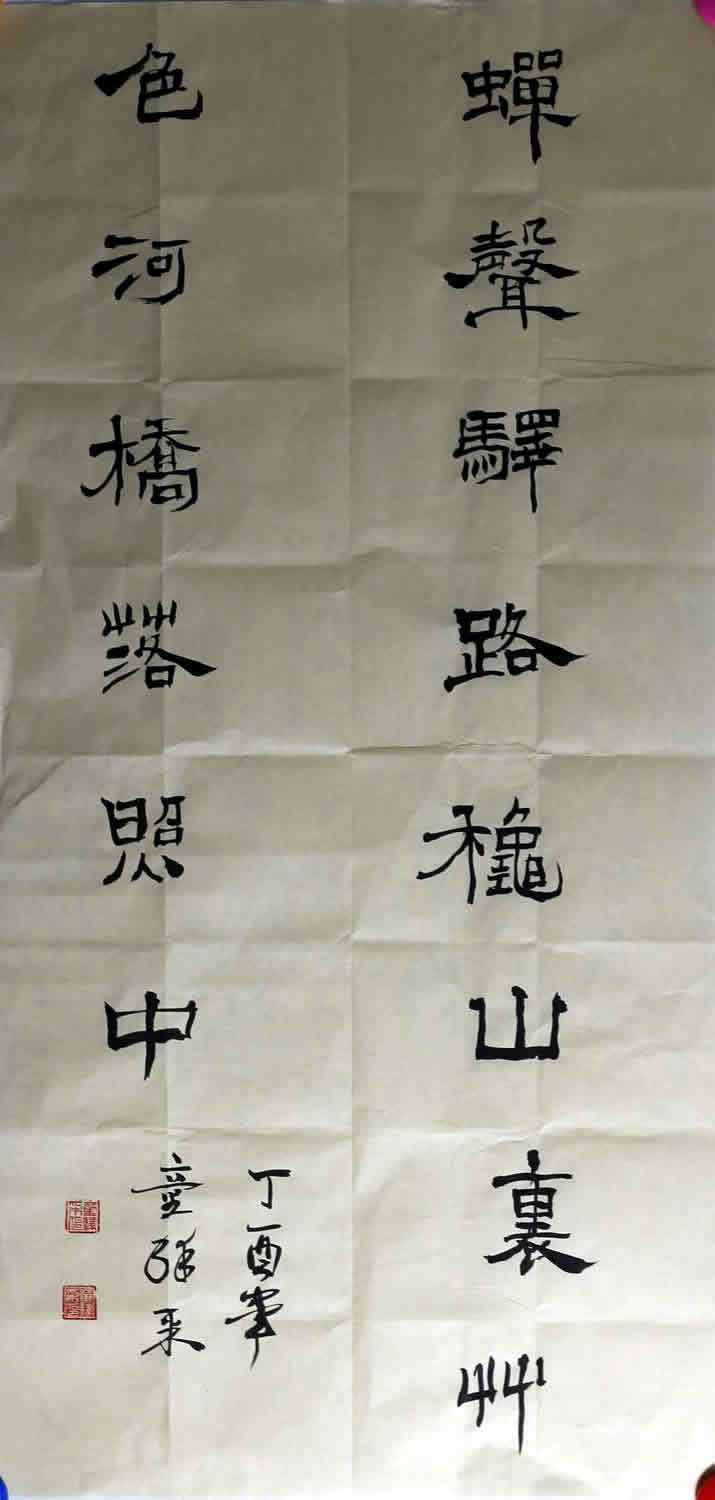 蟬聲驛路穐山裏艸
色河橋落照中
丁酉年
童